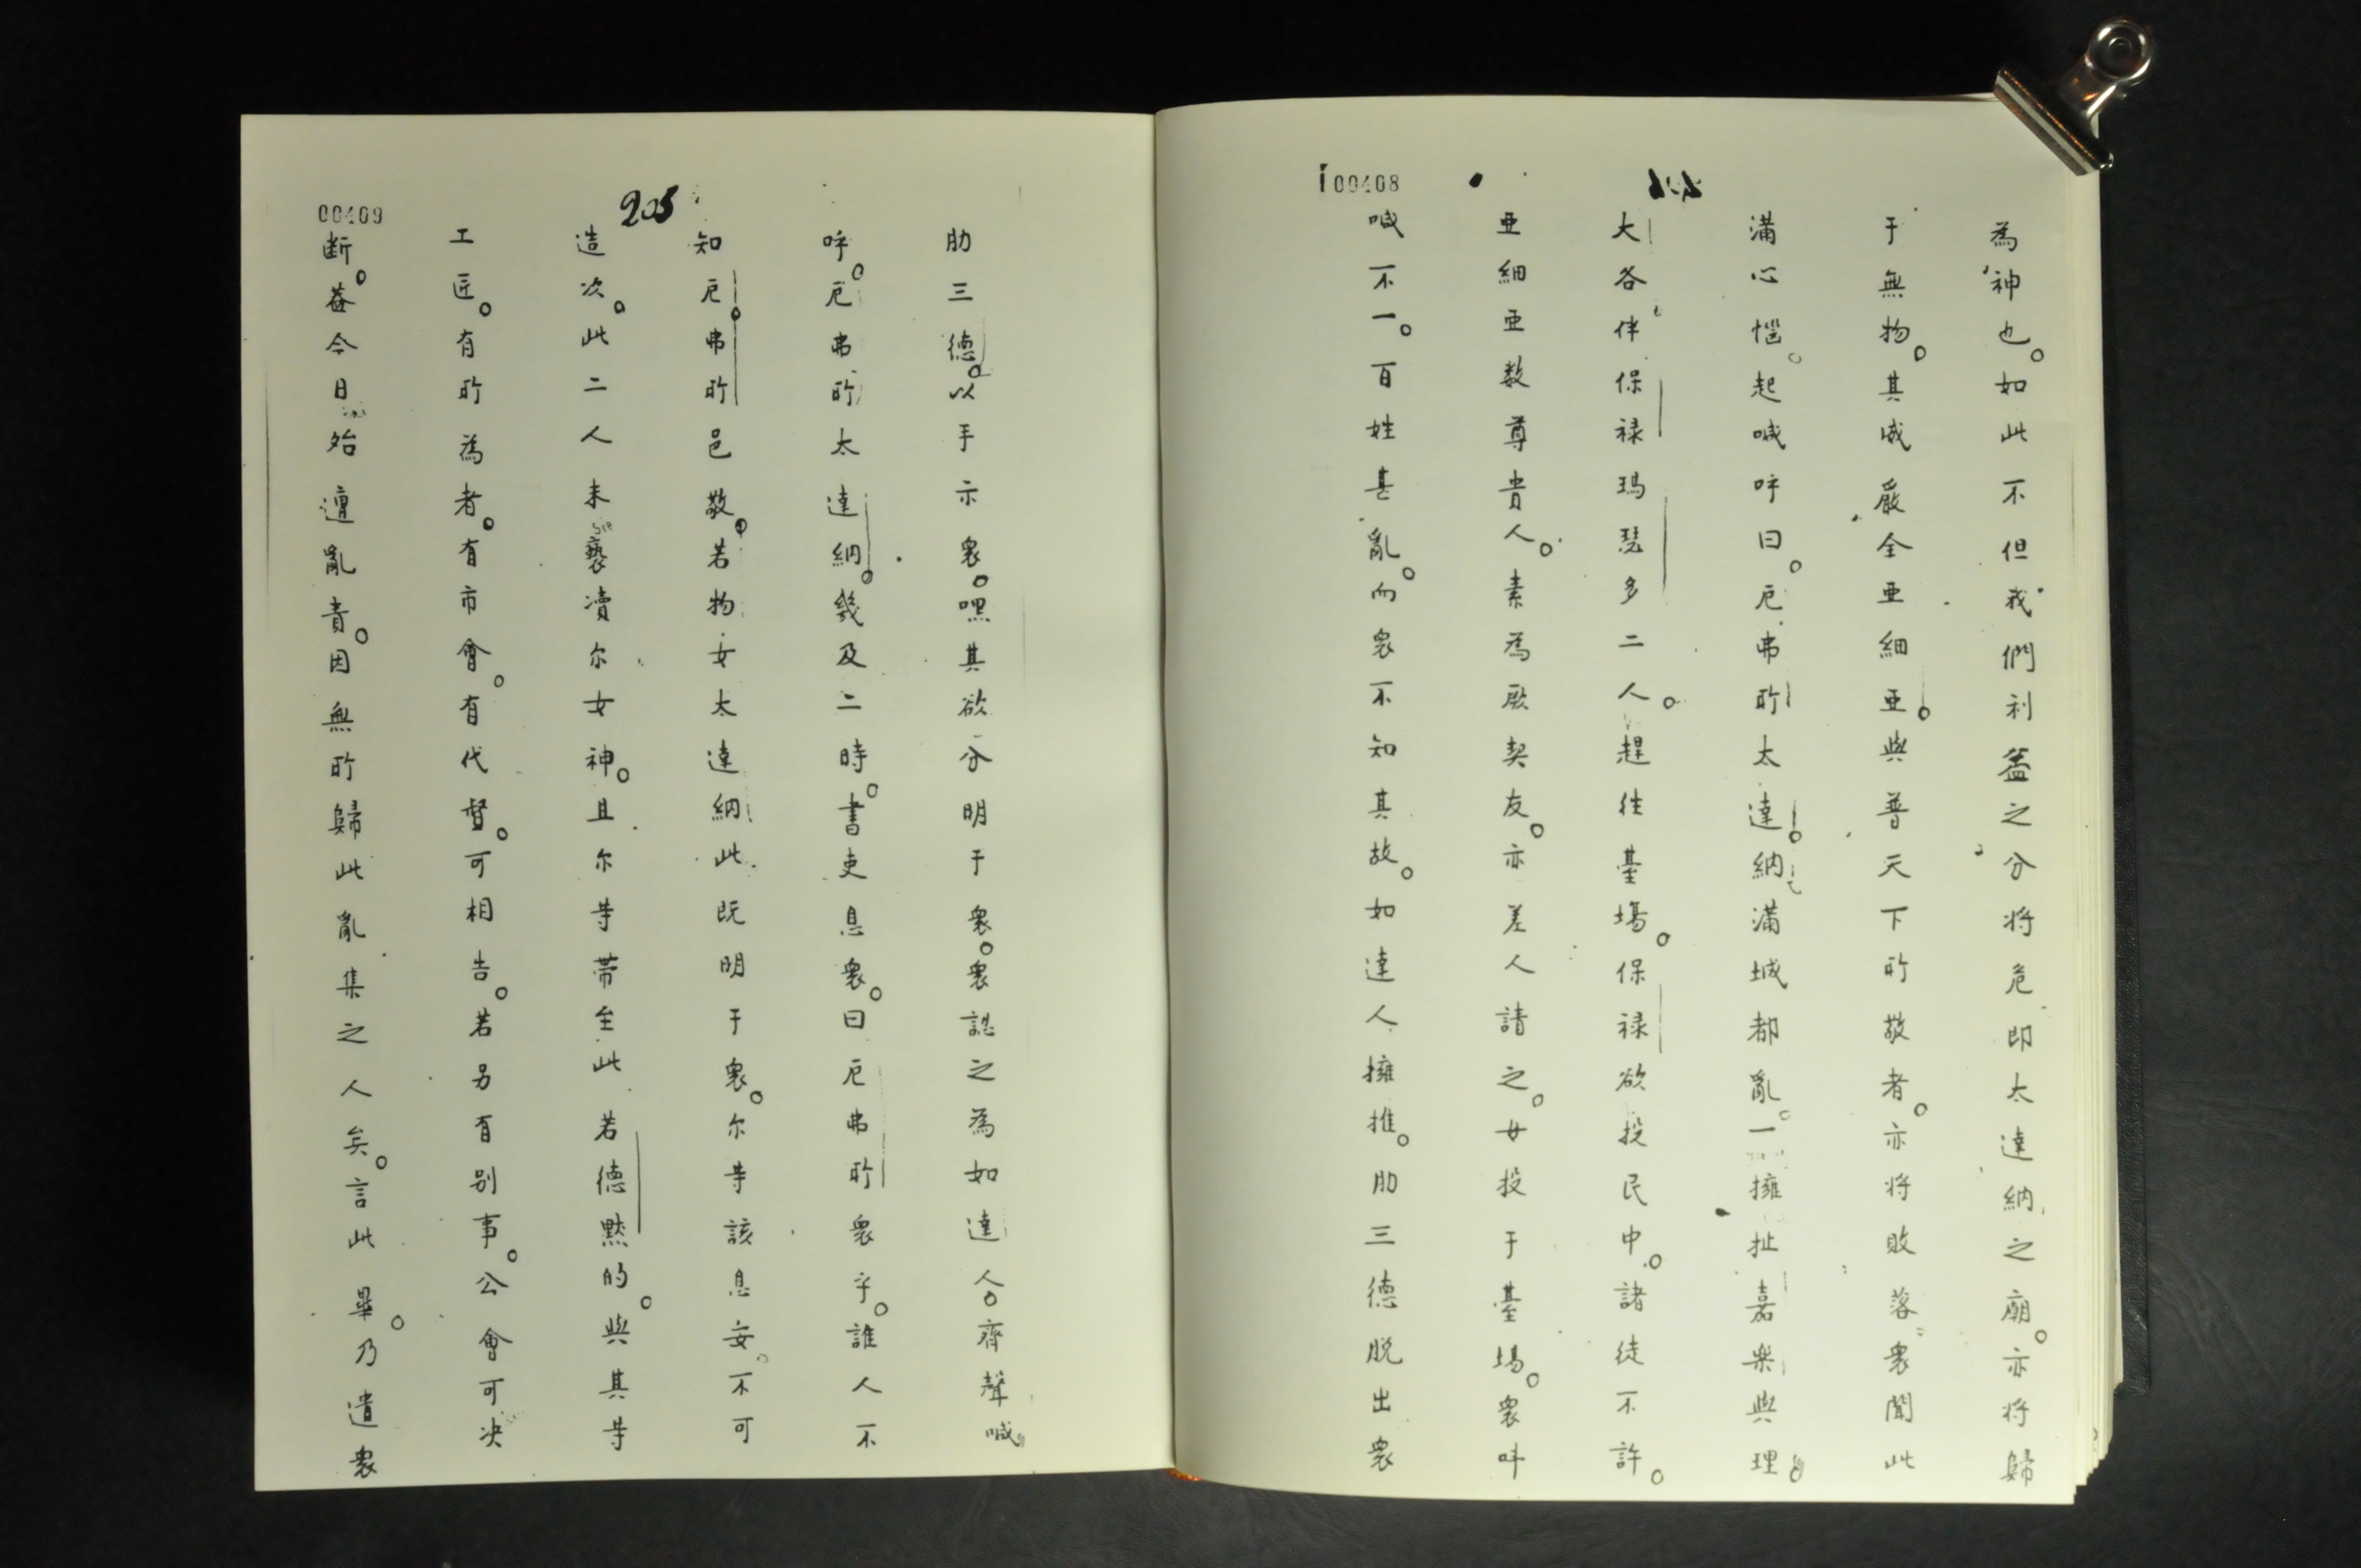 00408
為神也。如此不但我們利益之分將危即太達納之廟。亦將歸
于無物。其威嚴全亜細亜。與普天下所敬者。亦將敗落衆聞此
滿心惱。起喊呼曰。厄弗所太達。納滿城都亂。一擁扯嘉樂與理。
大各伴保禄瑪瑟多二人。趕往臺塲。保禄欲投民中。諸徒不許。
亜細亜数尊貴人。素為厥契友。亦差人請之。女投于臺塲。衆叫
喊不一。百姓甚亂。而衆不知其故。如達人擁推。肋三德脱出衆
00409
205
肋三德。以手示衆。嘿其欲分明于衆。衆認之為如達人。齊聲喊
呼。厄弗所太達納。幾及二時。書吏息衆。曰厄弗所衆乎。誰人不
知厄。弗所邑敬。若物女太達納此既明于衆。尔等該息妄。不可
造次。此二人未褻瀆尔女神。且尔等帶至此若德黙的。與其等
工匠。有所為者。有市會。有代督。可相告。若另有别事。公會可决
断。葢今日始遭亂責。因無所歸此亂集之人矣。言此畢。乃遣衆